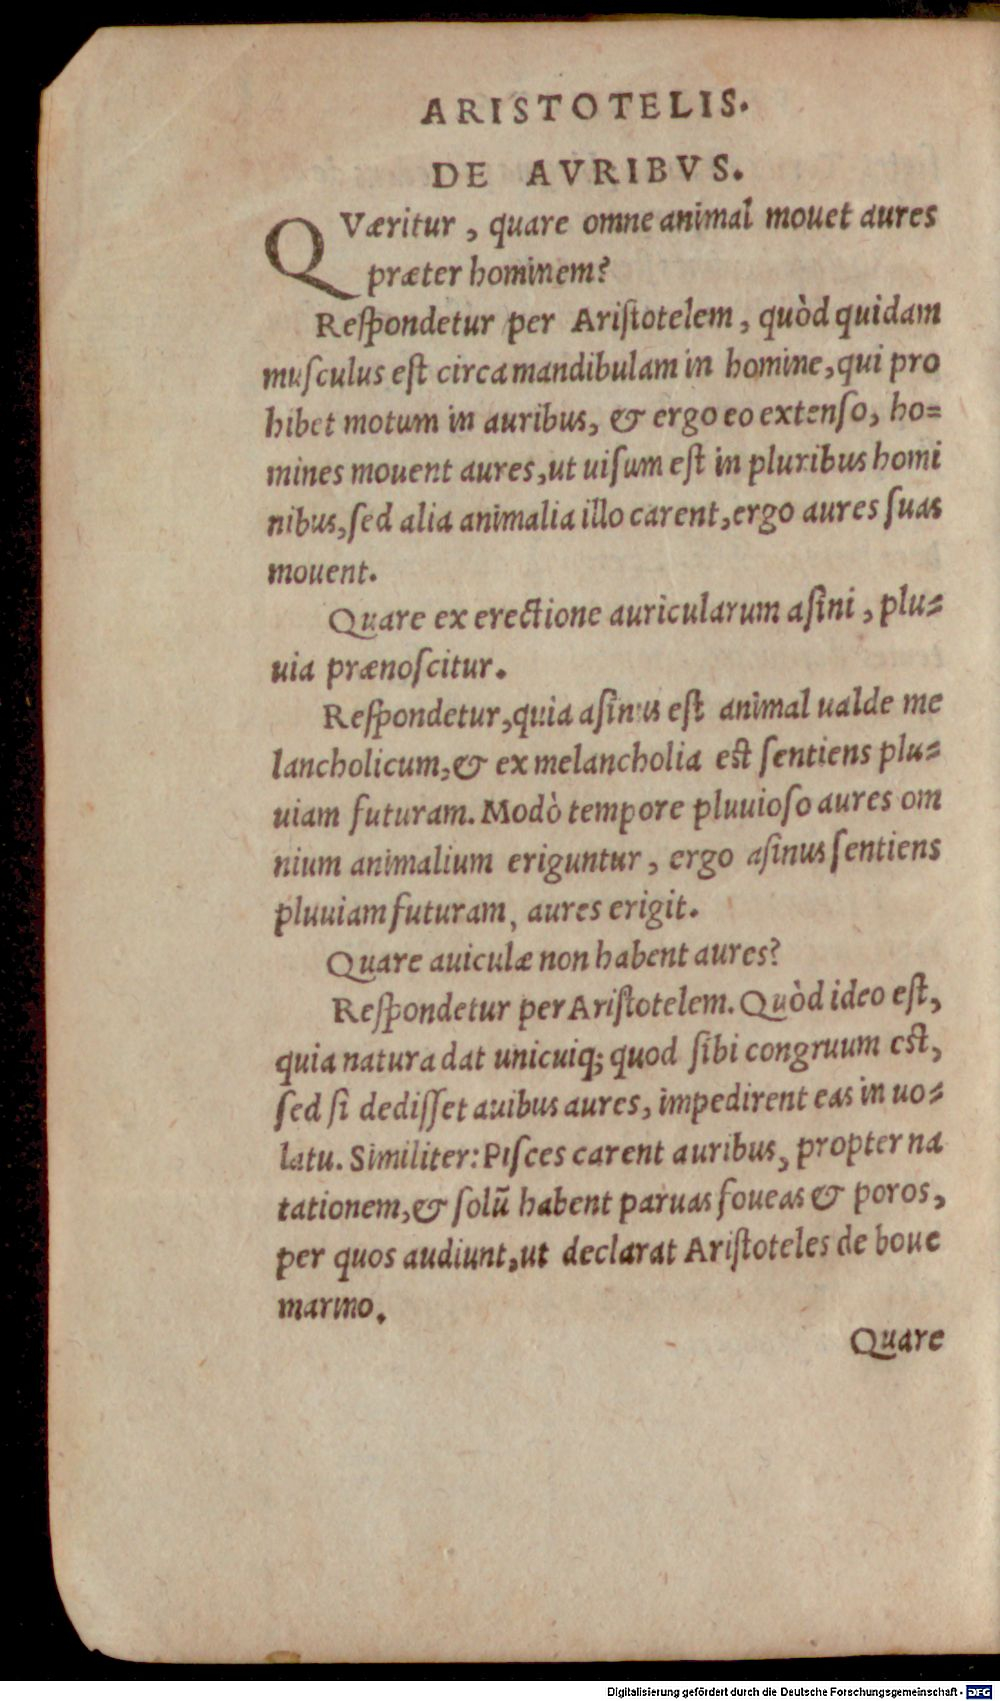 ARISTOTELIS.
DE AVRIBVS.
QVæritur, quare omne animal mouet aures
præter hominem?
Reſpondetur per Ariſtotelem, quòd quidam
muſculus eſt circa mandibulam in homine, qui pro
hibet motum in auribus, & ergo eo extenſo, ho=
mines mouent aures, ut uiſum eſt in pluribus homi
nibus, ſed alia animalia illo carent, ergo aures ſuas
mouent.
Quare ex erectione auricularum aſini, plu=
uia prænoſcitur.
Reſpondetur, quia aſinus eſt animal ualde me
lancholicum, & ex melancholia eſt ſentiens plu=
uiam futuram. Modò tempore pluuioſo aures om
nium animalium eriguntur, ergo aſinus ſentiens
pluuiam futuram, aures erigit.
Quare auiculæ non habent aures?
Reſpondetur per Ariſtotelem. Quòd ideo eſt,
quia natura dat unicuiq; quod ſibi congruum eſt,
ſed ſi dediſſet auibus aures, impedirent eas in uo=
latu. Similiter: Piſces carent auribus, propter na
tationem, & ſolũ habent paruas foueas & poros,
per quos audiunt, ut declarat Ariſtoteles de boue
marino.
Quare
Digitalisierung gefördert durch die Deutsche Forschungsgemeinschaft - DFG